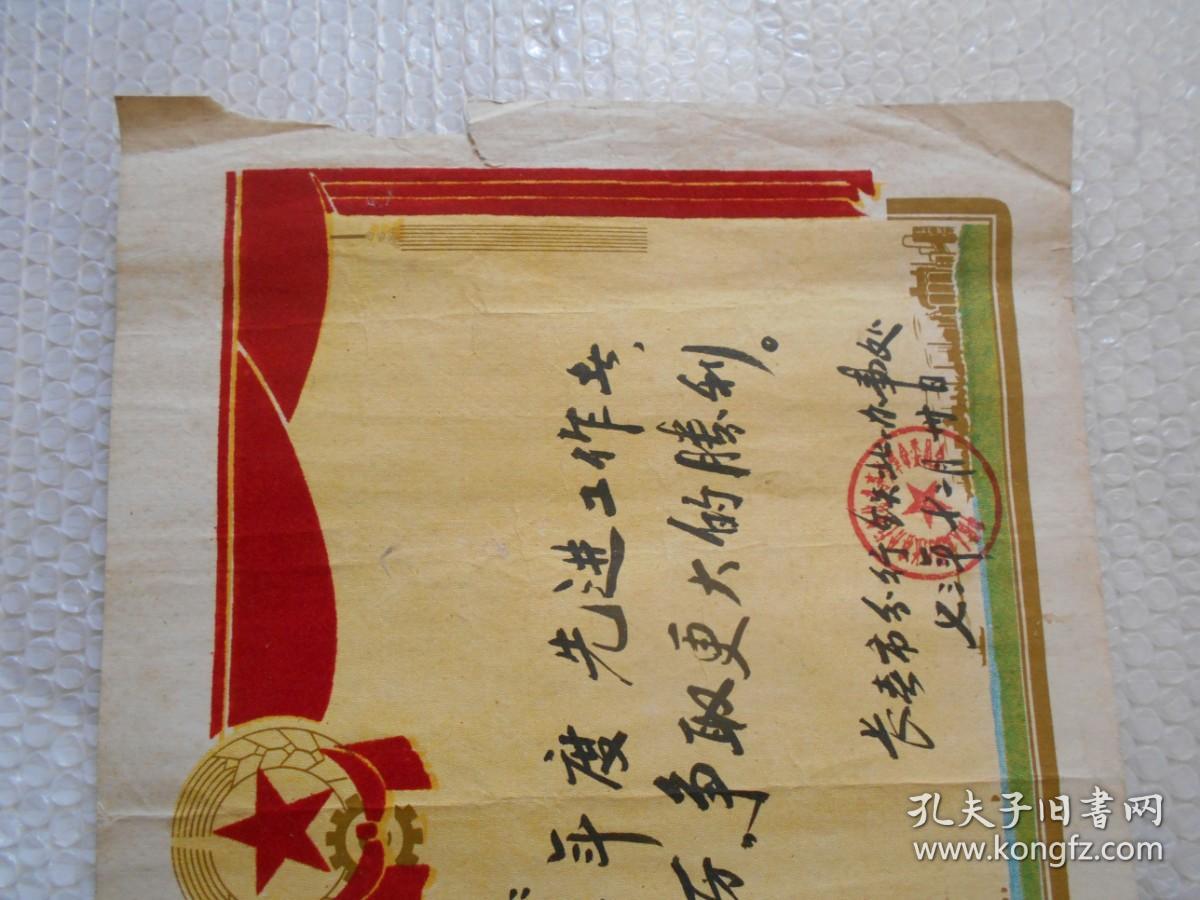 年度 先进工作者、
争取更大的胜利。
长春市分行
办事处
七三年十二月卅日
孔夫子旧书网
www.kongfz.com